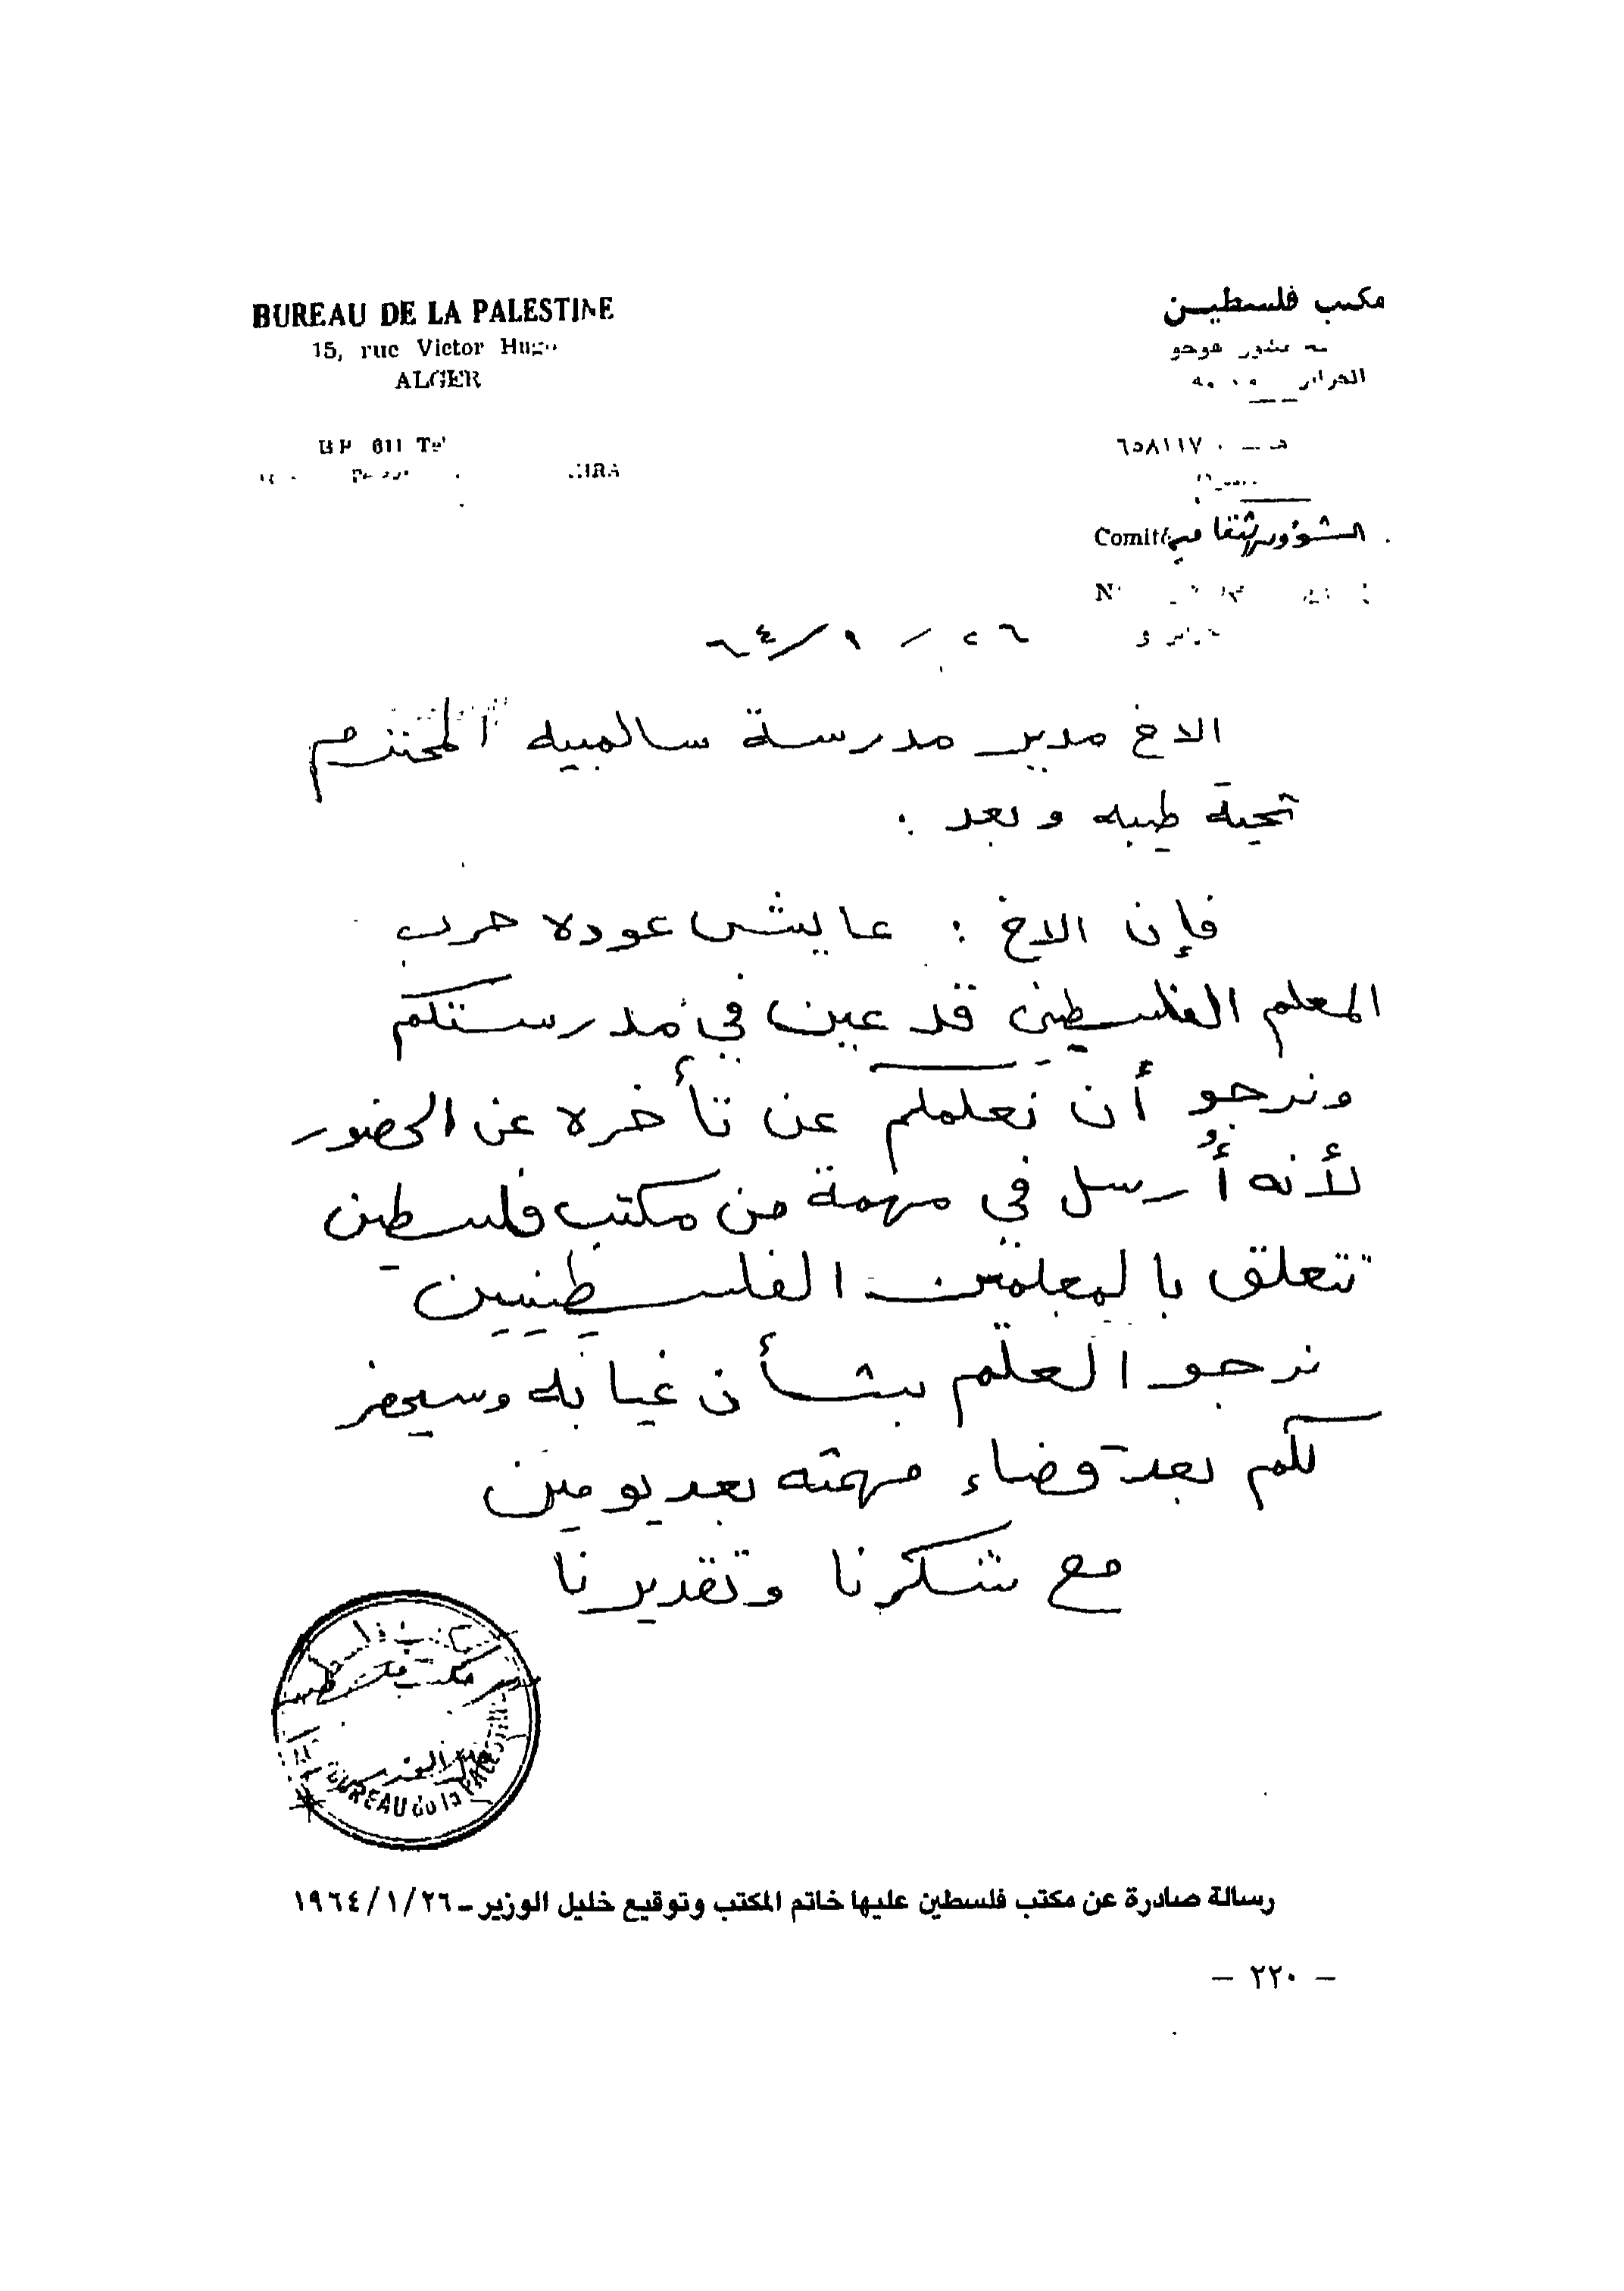 BUREAU DE LA PALESTINE
15, rue Victor Hugo
ALGER
BP 611 Tel
مكتب فلسطين
فيكتور هوجو
الجزائر
٦٥٨١١٧
Comité الشؤون الثقافية
٢٦ / ٩ / ٦٤
الاخ مدير مدرسة سالمبيه المحترم
تحية طيبه وبعد .
فإن الاخ : عايش عوده حرب
المعلم الفلسطيني قد عين في مدرستكم
ونرجو أن نعلمكم عن تأخره عن الحضور
لأنه أُرسل في مهمة من مكتب فلسطين
تتعلق بالمعلمين الفلسطينيين
نرجو العلم بشأن غيابه وسيحضر
لكم بعد قضاء مهمته بعد يومين
مع شكرنا وتقديرنا
مكتب فلسطين
BUREAU de la PALESTINE
رسالة صادرة عن مكتب فلسطين عليها خاتم المكتب وتوقيع خليل الوزير - ٢٦/١/١٩٦٤
- ٢٢٠ -